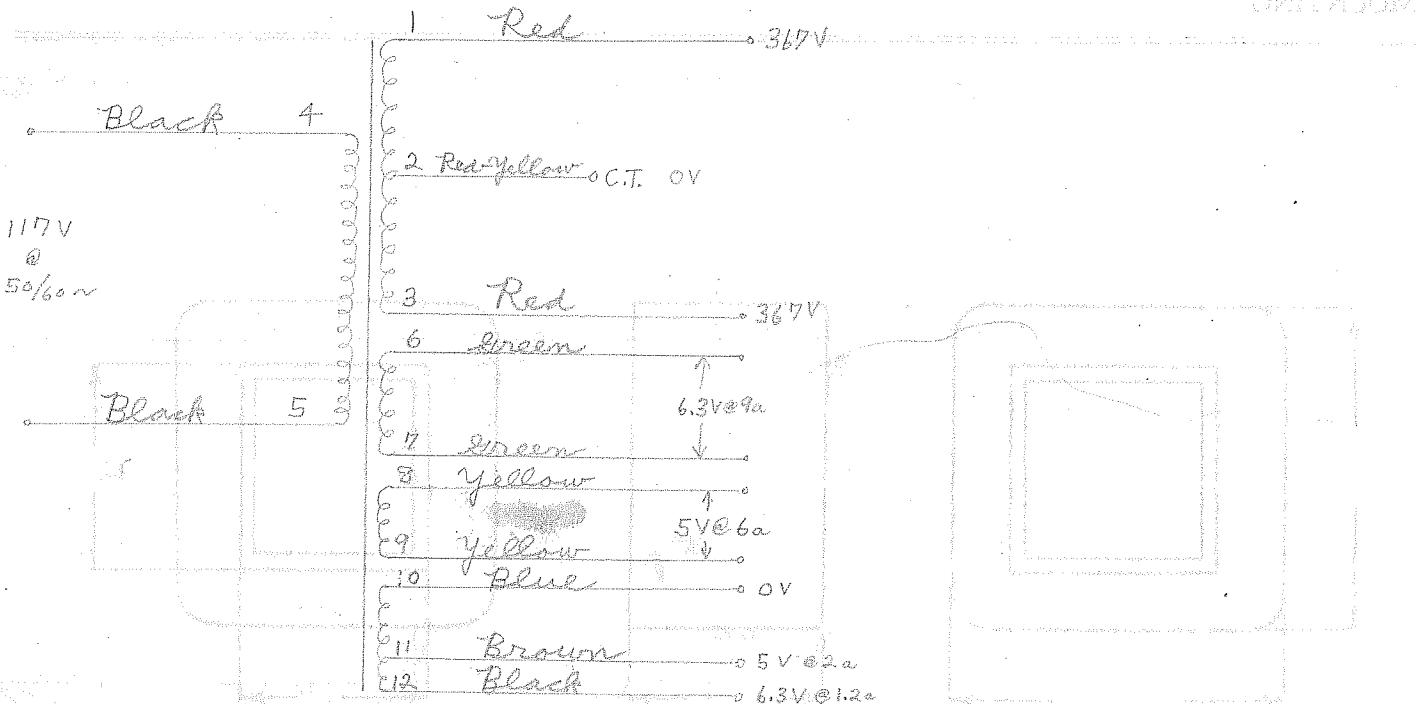 1 Red 367V
Black 4
2 Red-Yellow C.T. 0V
117V
@
50/60~
3 Red 367V
6 Green
Black 5
6.3V@9a
7 Green
8 Yellow
5V@6a
9 Yellow
10 Blue 0V
11 Brown 5V@2a
12 Black 6.3V@1.2a